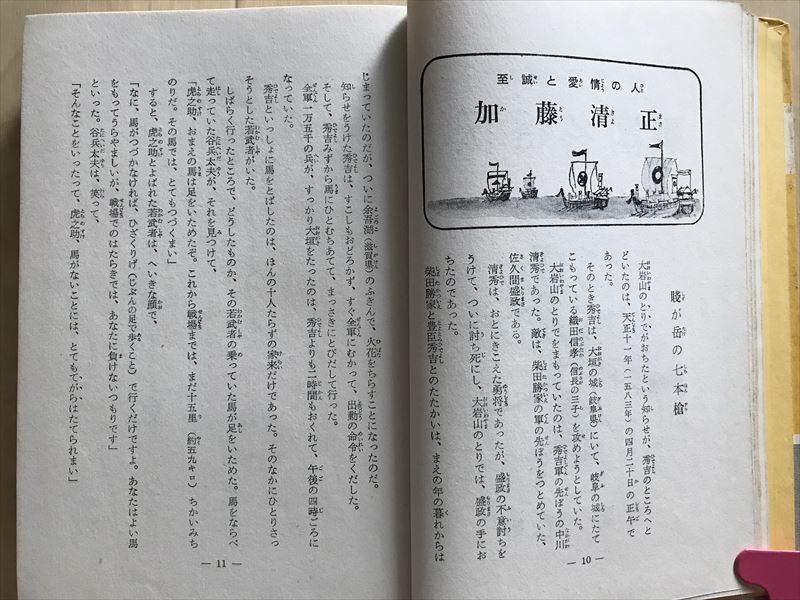 至誠と愛情の人
加藤清正
賤が岳の七本槍
大岩山のとりでがおちたという知らせが、秀吉のところへと
どいたのは、天正十一年(一五八三年)の四月二十日の正午で
あった。
そのとき秀吉は、大垣の城(岐阜県)にいて、岐阜の城にたて
こもっている織田信孝(信長の三子)を攻めようとしていた。
大岩山のとりでをまもっていたのは、秀吉軍の先ぽうの中川
清秀であった。敵は、柴田勝家の軍の先ぽうをつとめていた、
佐久間盛政である。
清秀は、おとにきこえた勇将であったが、盛政の不意討ちを
うけて、ついに討ち死にし、大岩山のとりでは、盛政の手にお
ちたのであった。
柴田勝家と豊臣秀吉とのたたかいは、まえの年の暮れからは
— 10 —
じまっていたのだが、ついに余吾湖(滋賀県)のふきんで、火花をちらすことになったのだ。
知らせをうけた秀吉は、すこしもおどろかず、すぐ全軍にむかって、出動の命令をくだした。
そして、秀吉みずから馬にひとむちあてて、まっさきにとびだして行った。
全軍一万五千の兵が、すっかり大垣をたったのは、秀吉よりも二時間もおくれて、午後の四時ごろに
なっていた。
秀吉といっしょに馬をとばしたのは、ほんの十人たらずの家来だけであった。そのなかにひとりさっ
そうとした若武者がいた。
しばらく行ったところで、どうしたものか、その若武者の乗っていた馬が足をいためた。馬をならべ
て走っていた谷兵太夫が、それを見つけて、
「虎之助、おまえの馬は足をいためたぞ。これから戦場までは、まだ十五里(約五九キロ)ちかいみち
のりだ。その馬では、とてもつづくまい」
すると、虎之助とよばれた若武者は、へいきな顔で、
「なに、馬がつづかなければ、ひざくりげ(じぶんの足で歩くこと)で行くだけですよ。あなたはよい馬
をもってうらやましいが、戦場でのはたらきでは、あなたに負けないつもりです」
といった。谷兵太夫は、笑って、
「そんなことをいったって、虎之助、馬がないことには、とてもてがらはたてられまい」
— 11 —